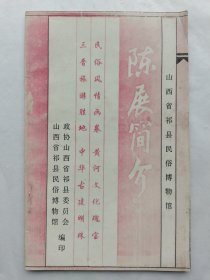 山西省祁县民俗博物馆
陈展简介
民俗风情画卷 黄河文化瑰宝
三晋旅游胜地 中华古建明珠
政协山西省祁县委员会
山西省祁县民俗博物馆
编印